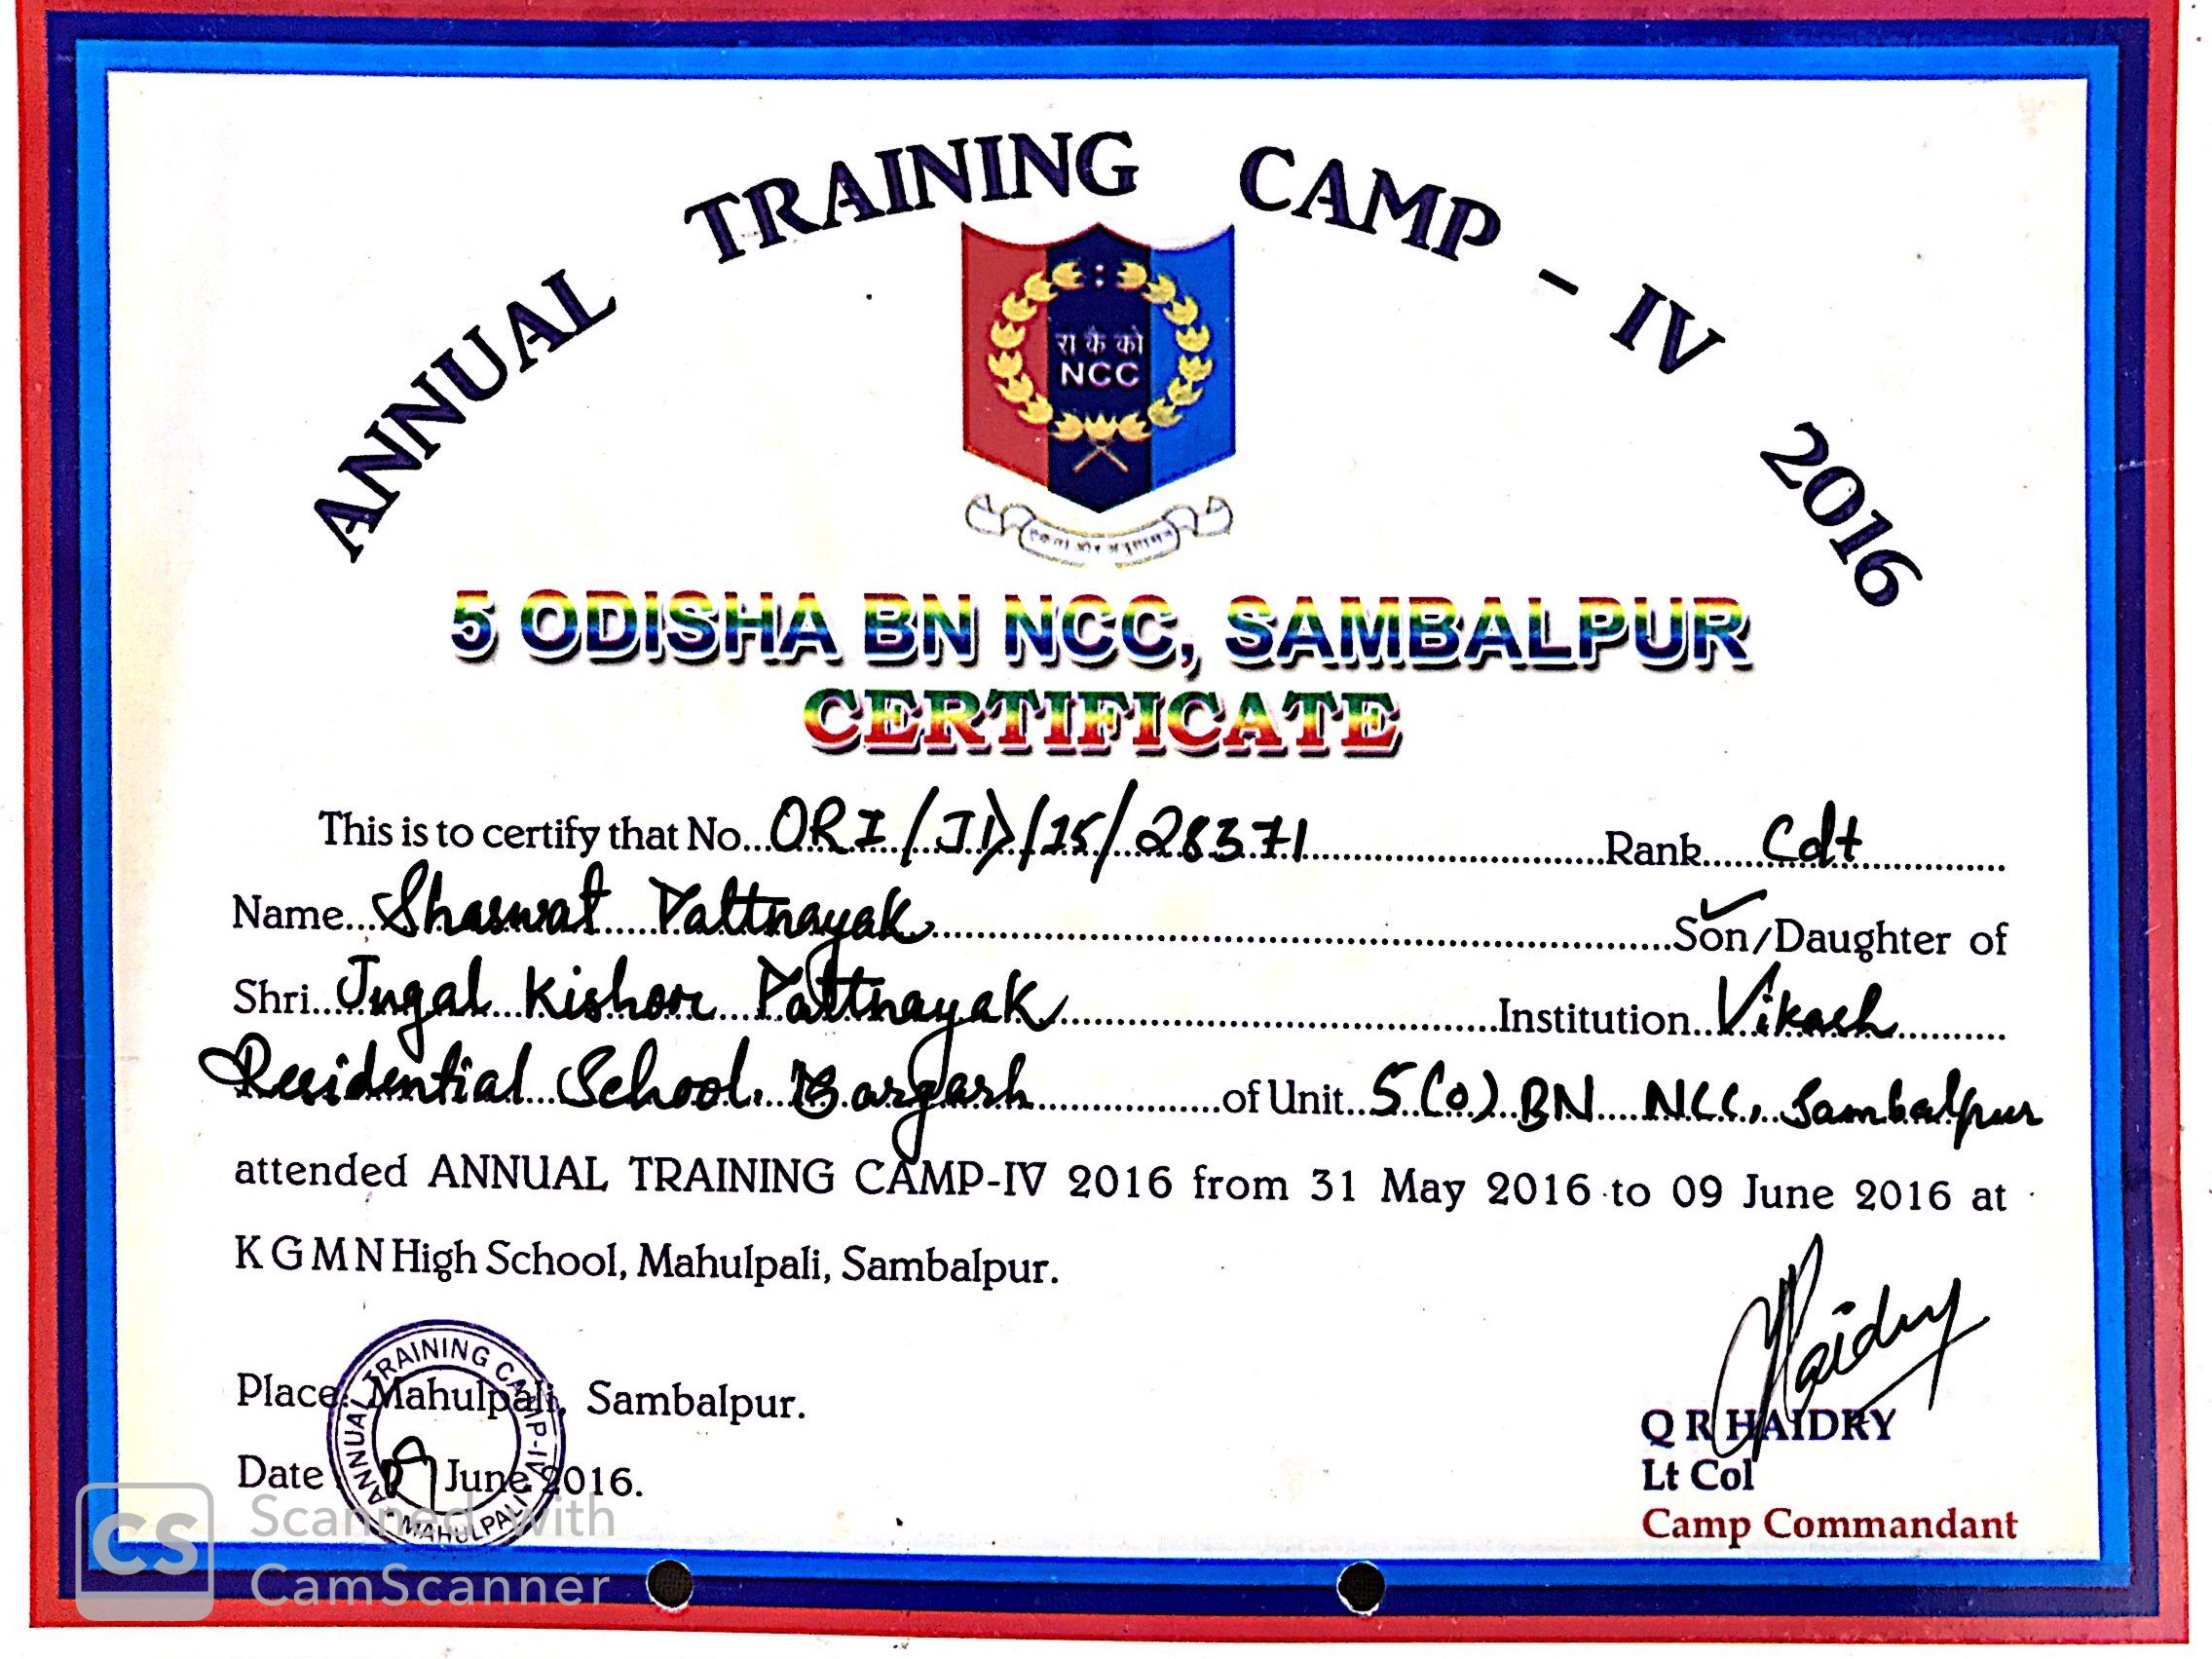 ANNUAL TRAINING CAMP - IV 2016
रा कै को
NCC
एकता और अनुशासन
5 ODISHA BN NCC, SAMBALPUR
CERTIFICATE
This is to certify that No...ORI/JD/15/28371...Rank...Cdt...
Name...Shaswat Pattnayak...Son/Daughter of
Shri...Jugal Kishor Pattnayak...Institution...Vikash...
Residential School. Bargarh...of Unit...5(O) BN NCC, Sambalpur
attended ANNUAL TRAINING CAMP-IV 2016 from 31 May 2016 to 09 June 2016 at
K G M N High School, Mahulpali, Sambalpur.
ANNUAL TRAINING CAMP-IV
MAHULPALI
Place: Mahulpali, Sambalpur.
Date 09 June 2016.
Haidry
Q R HAIDRY
Lt Col
Camp Commandant
CS
Scanned with
CamScanner